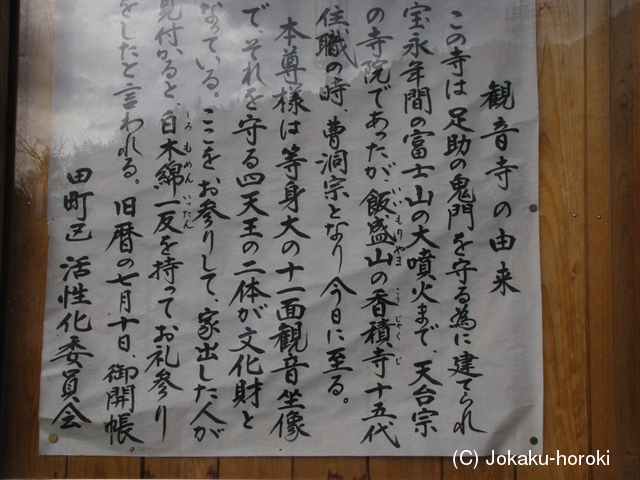 観音寺の由来
この寺は足助の鬼門を守る為に建てられ
宝永年間の富士山の大噴火まで、天台宗
の寺院であったが飯盛山の香積寺十五代
いいもりやま
こうじゃくじ
住職の時、曹洞宗となり今日に至る。
本尊様は等身大の十一面観音坐像
で、それを守る四天王の二体が文化財と
なっている。ここをお参りして、家出した人が
見付かると、白木綿一反を持ってお礼参り
しろもめんいったん
をしたと言われる。旧暦の七月十日、御開帳。
田町区活性化委員会
(C) Jokaku-horoki